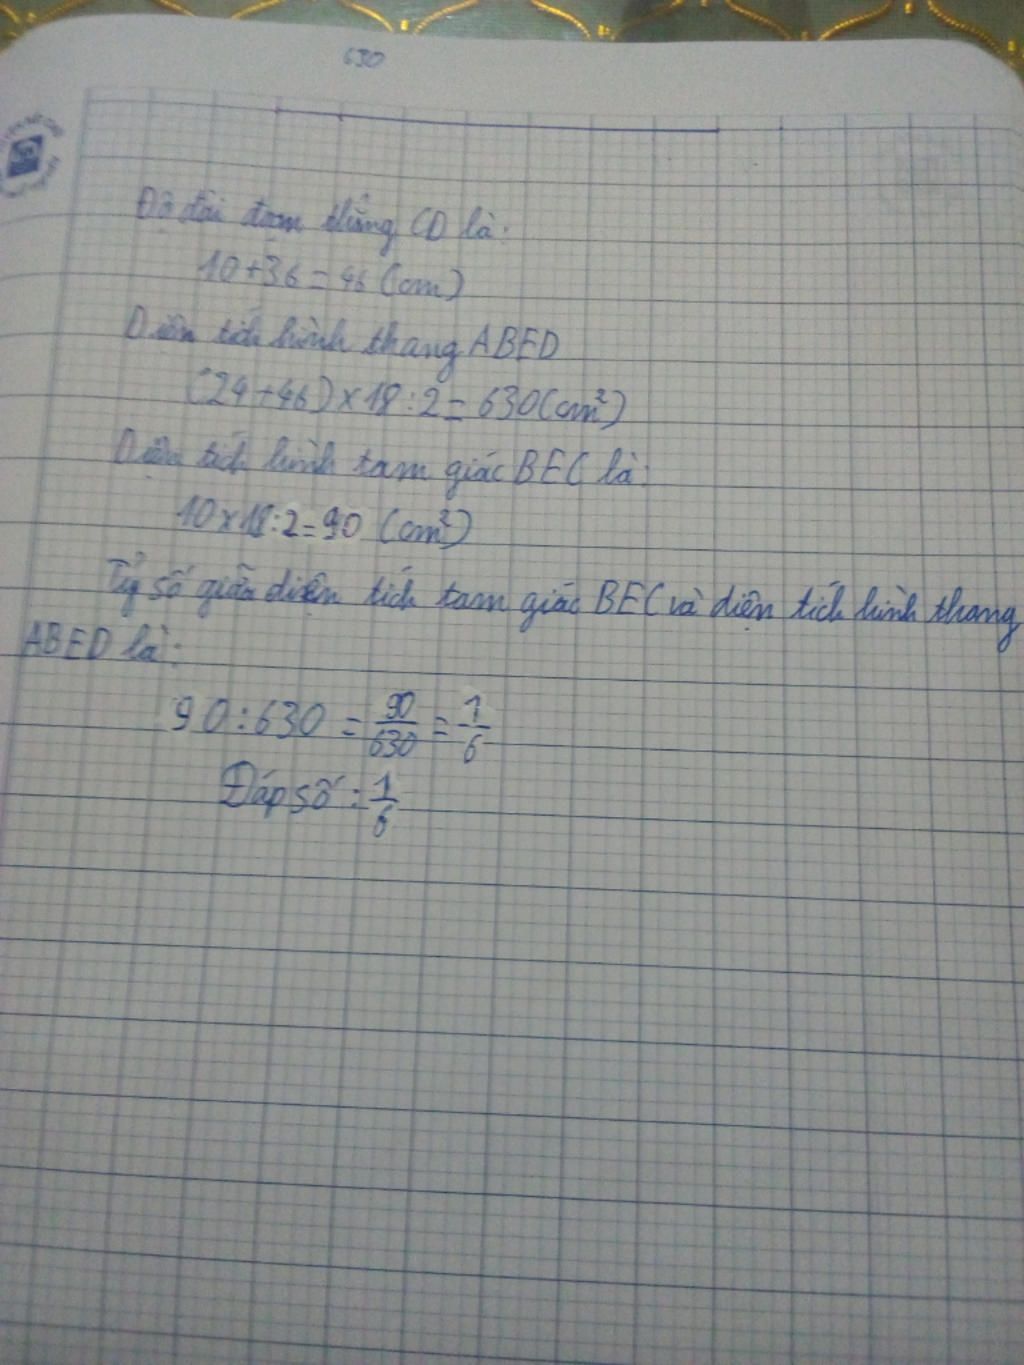 630
Độ dài đoạn thẳng CD là:
10+36=46 (cm)
Diện tích hình thang ABED
(24+46)×18:2=630(cm²)
Diện tích hình tam giác BEC là:
10×18:2=90 (cm²)
Tỷ số giữa diện tích tam giác BEC và diện tích hình thang
ABED là:
90:630 = 90/630 = 1/6
Đáp số: 1/6